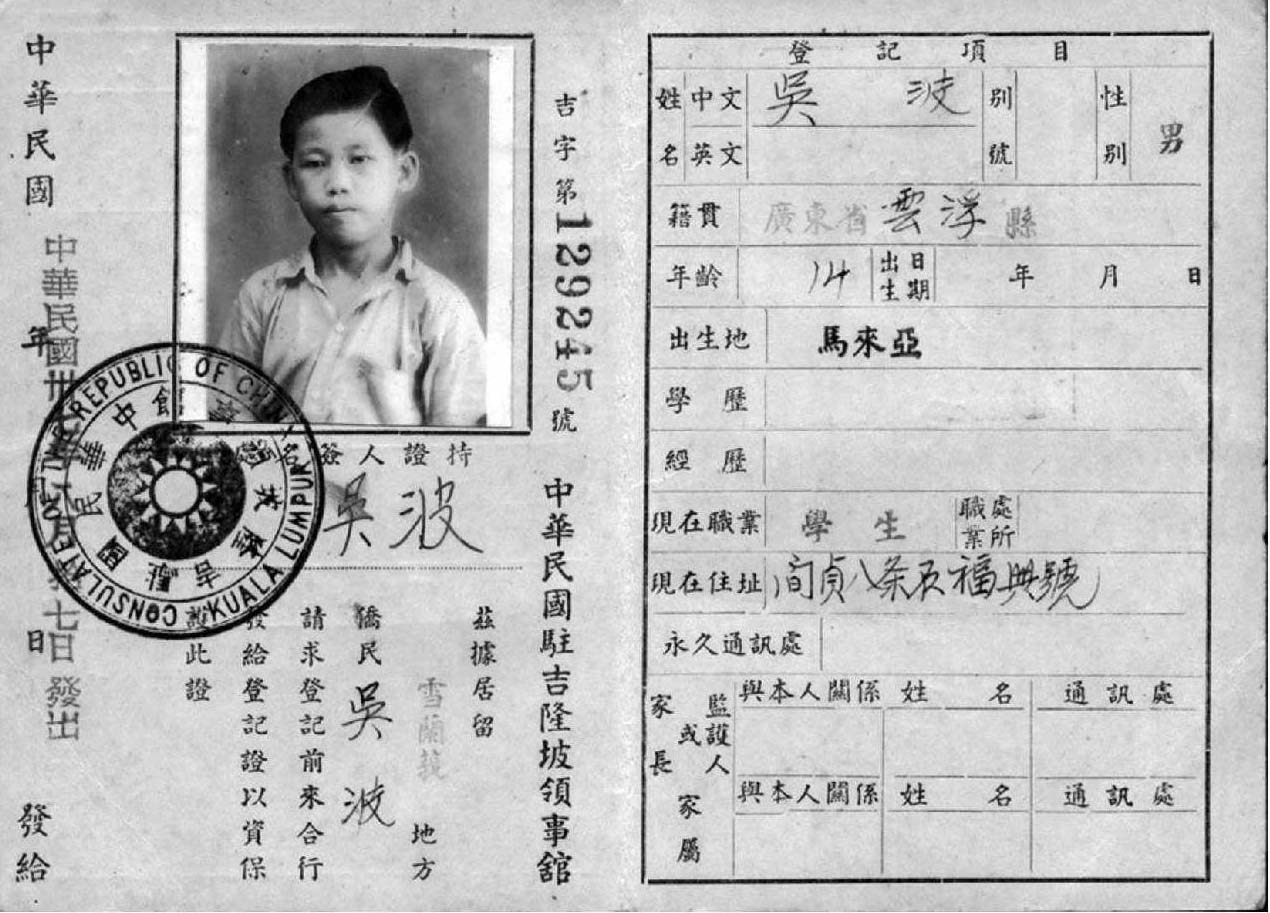 登記項目
姓名 中文 吳波 別號 性別 男
英文
籍貫 廣東省雲浮縣
年齡 14 出生日期 年 月 日
出生地 馬來亞
學歷
經歷
現在職業 學生 職業處所
現在住址 間貞八条五福興號
永久通訊處
家長或監護人 與本人關係 姓名 通訊處
家屬 與本人關係 姓名 通訊處
吉字第129245號
持證人簽名
吳波
中華民國駐吉隆坡領事館
茲據居留
雪蘭莪 地方
僑民 吳波
請求登記前來合行
發給登記證以資保
證此證
CONSULATE OF THE REPUBLIC OF CHINA KUALA LUMPUR
中華民國駐吉隆坡領事館
中華民國 年 月 日 發給
中華民國卅 月 七日發出